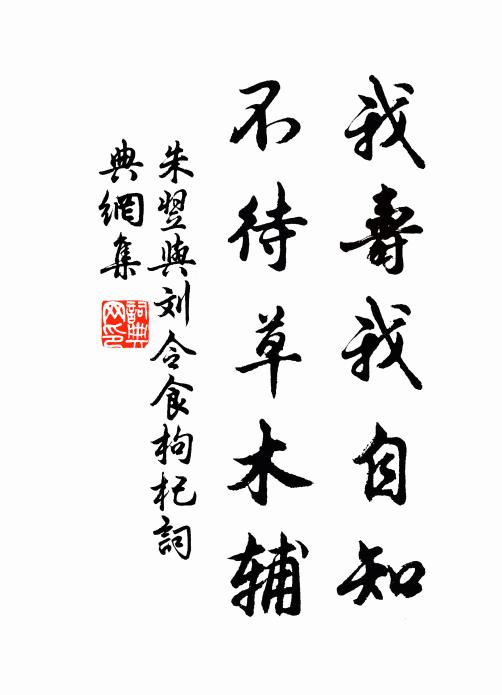 我壽我自知
不待草木辅
朱翌與刘令食枸杞詞
典網集
詞典
网印